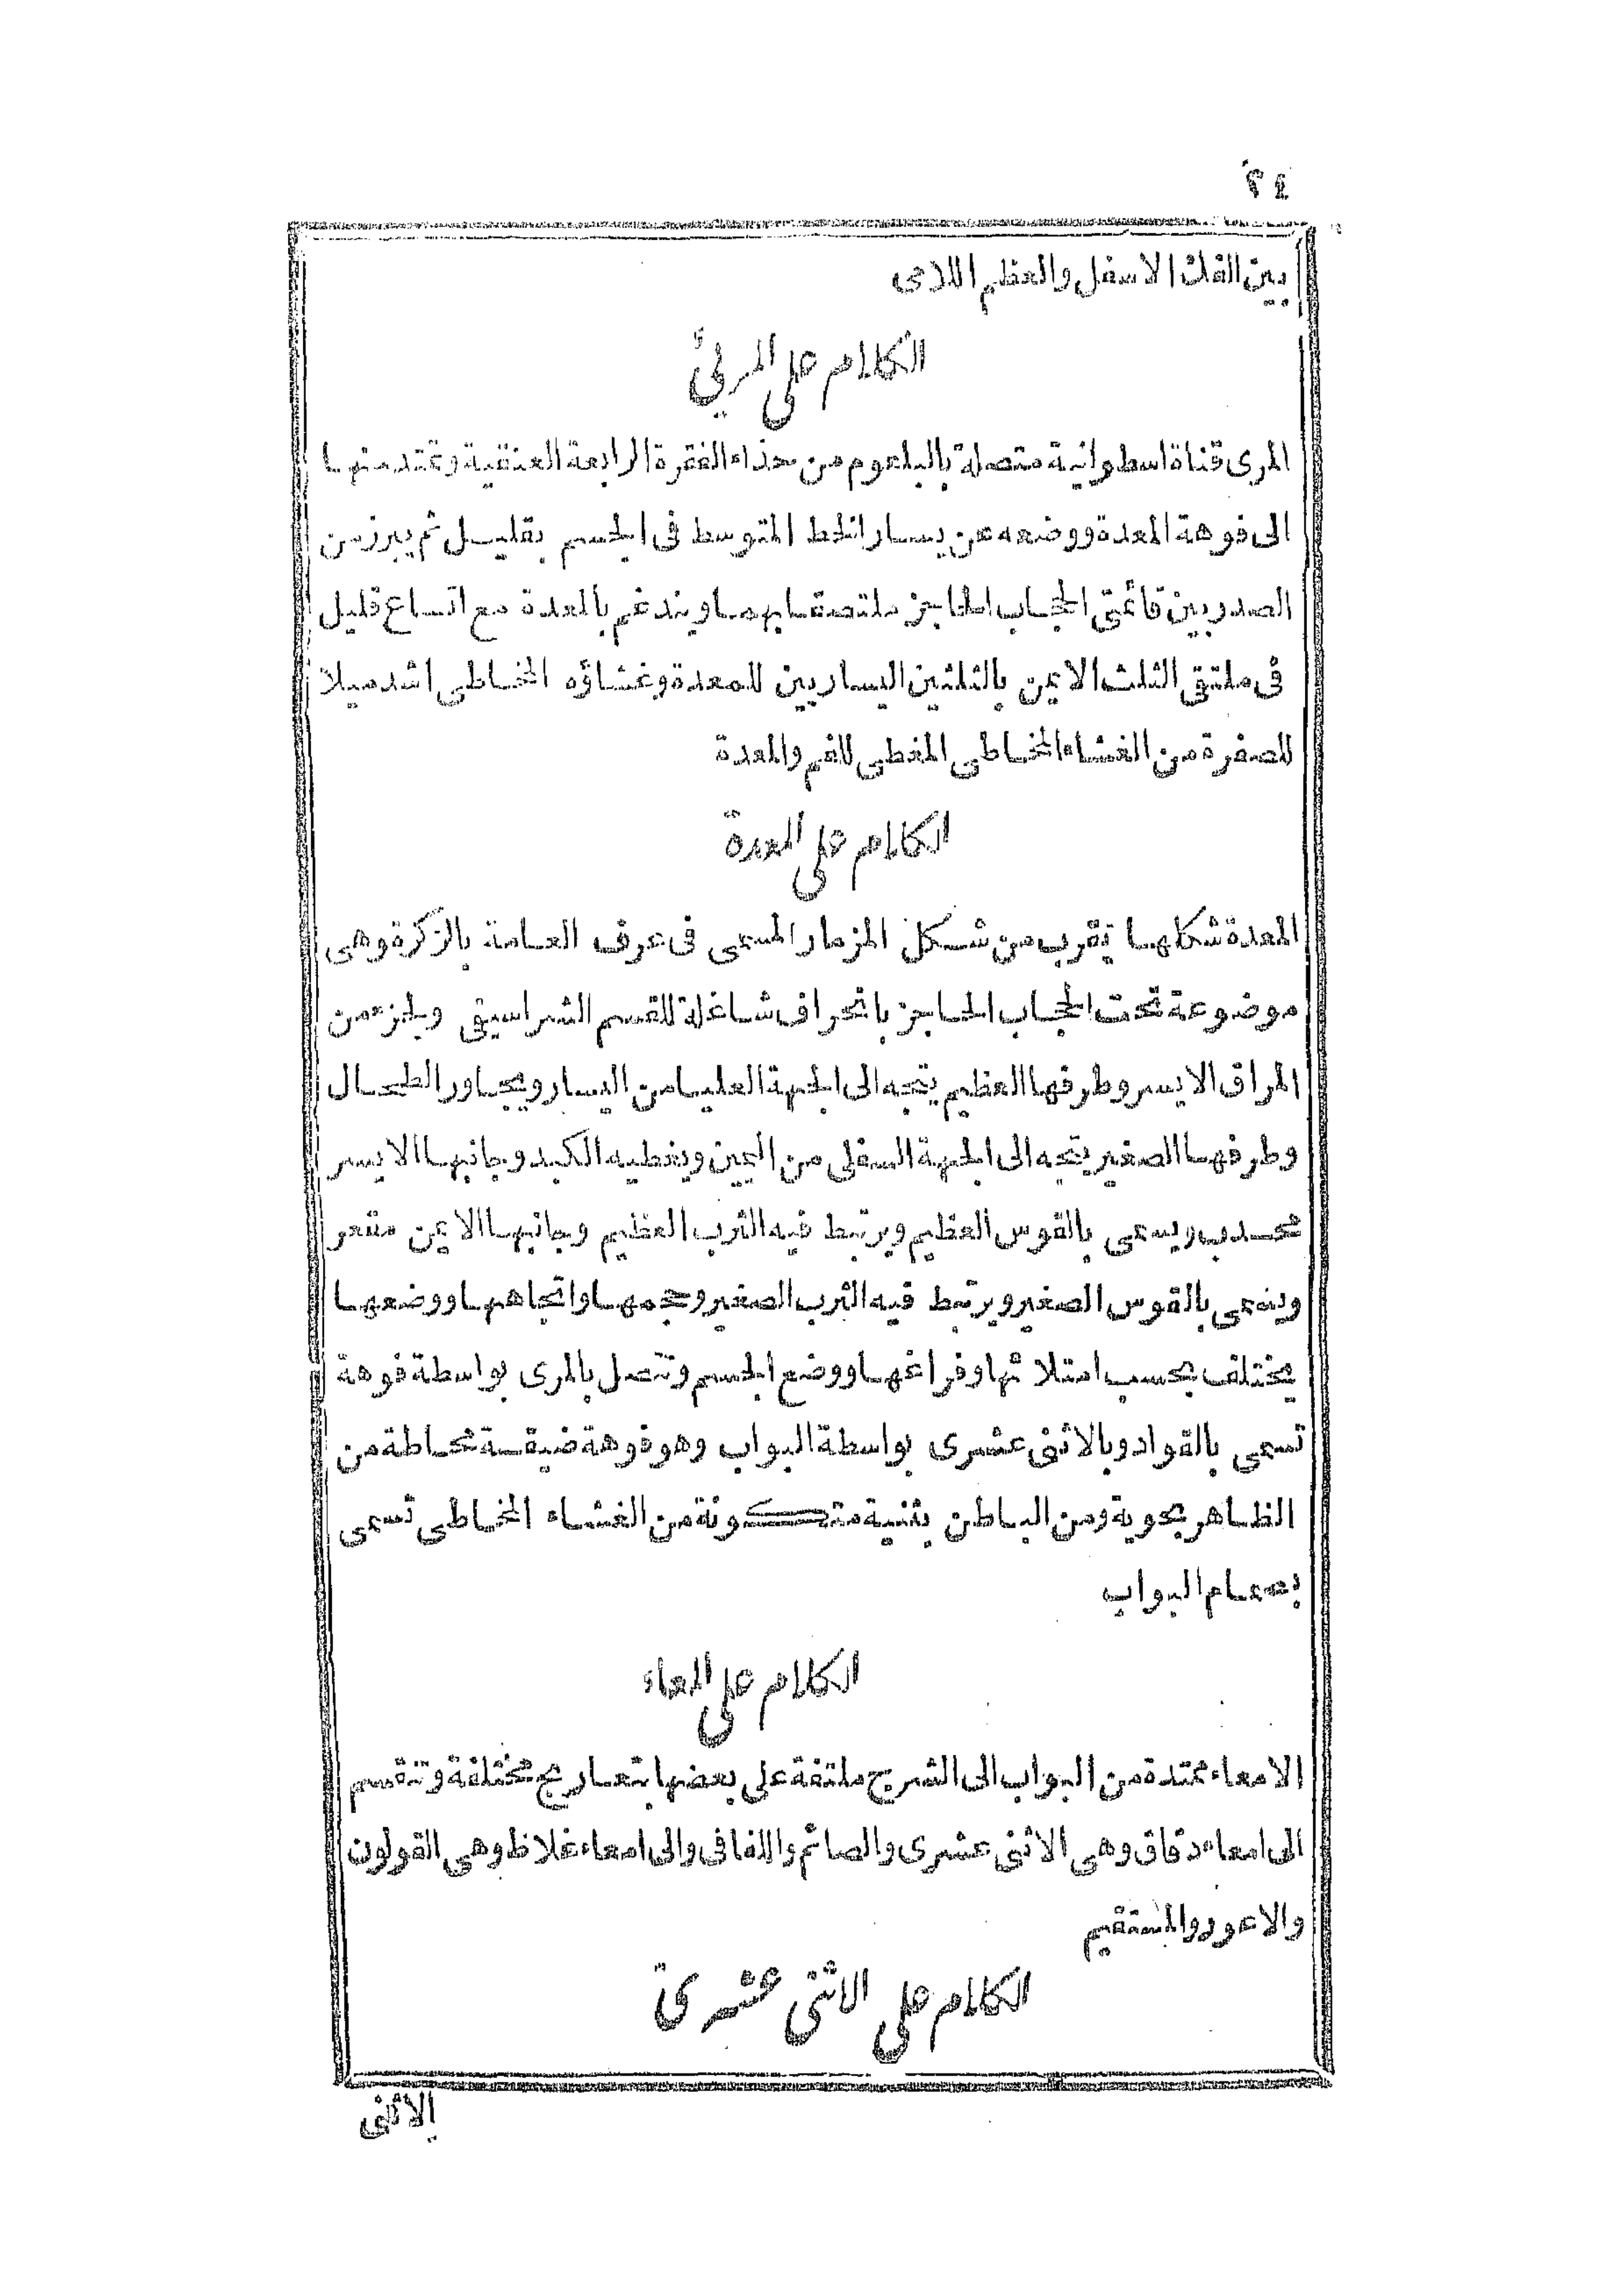 ٢٤
بين الفك الاسفل والعظم اللامى
الكلام على المرئ
المرى قناة اسطوانية متصلة بالبلعوم من حذاء الفقرة الرابعة العنقية وتمتد منها
الى فوهة المعدة ووضعه عن يسار الخط المتوسط فى الجسم بقليل ثم يبرز من
الصدر بين قائمتى الحجاب الحاجز ملتصقا بهما ويندغم بالمعدة مع اتساع قليل
فى ملتقى الثلث الايمن بالثلثين اليساريين للمعدة وغشاؤه المخاطى اشد ميلا
للصفرة من الغشاء المخاطى المغطى للفم والمعدة
الكلام على المعدة
المعدة شكلها يقرب من شكل المزمار المسمى فى عرف العامة بالزكرة وهى
موضوعة تحت الحجاب الحاجز بانحراف شاغلة للقسم الشراسيفى ولجزء من
المراق الايسر وطرفها العظيم يتجه الى الجهة العليا من اليسار ويجاور الطحال
وطرفها الصغير يتجه الى الجهة السفلى من اليمين ويغطيه الكبد وجانبها الايسر
محدب ويسمى بالقوس العظيم ويرتبط فيه الثرب العظيم وجانبها الايمن مقعر
ويسمى بالقوس الصغير ويرتبط فيه الثرب الصغير وحجمها واتجاهها ووضعها
يختلف بحسب امتلائها وفراغها ووضع الجسم وتتصل بالمرى بواسطة فوهة
تسمى بالفواد وبالاثنى عشرى بواسطة البواب وهو فوهة ضيقة محاطة من
الظاهر بحوية ومن الباطن بثنية متكونة من الغشاء المخاطى تسمى
بصمام البواب
الكلام على المعاء
الامعاء ممتدة من البواب الى الشرج ملتفة على بعضها بتعاريج مختلفة وتنقسم
الى امعاء دقاق وهى الاثنى عشرى والصائم واللفافى والى امعاء غلاظ وهى القولون
والاعور والمستقيم
الكلام على الاثنى عشرى
الاثنى